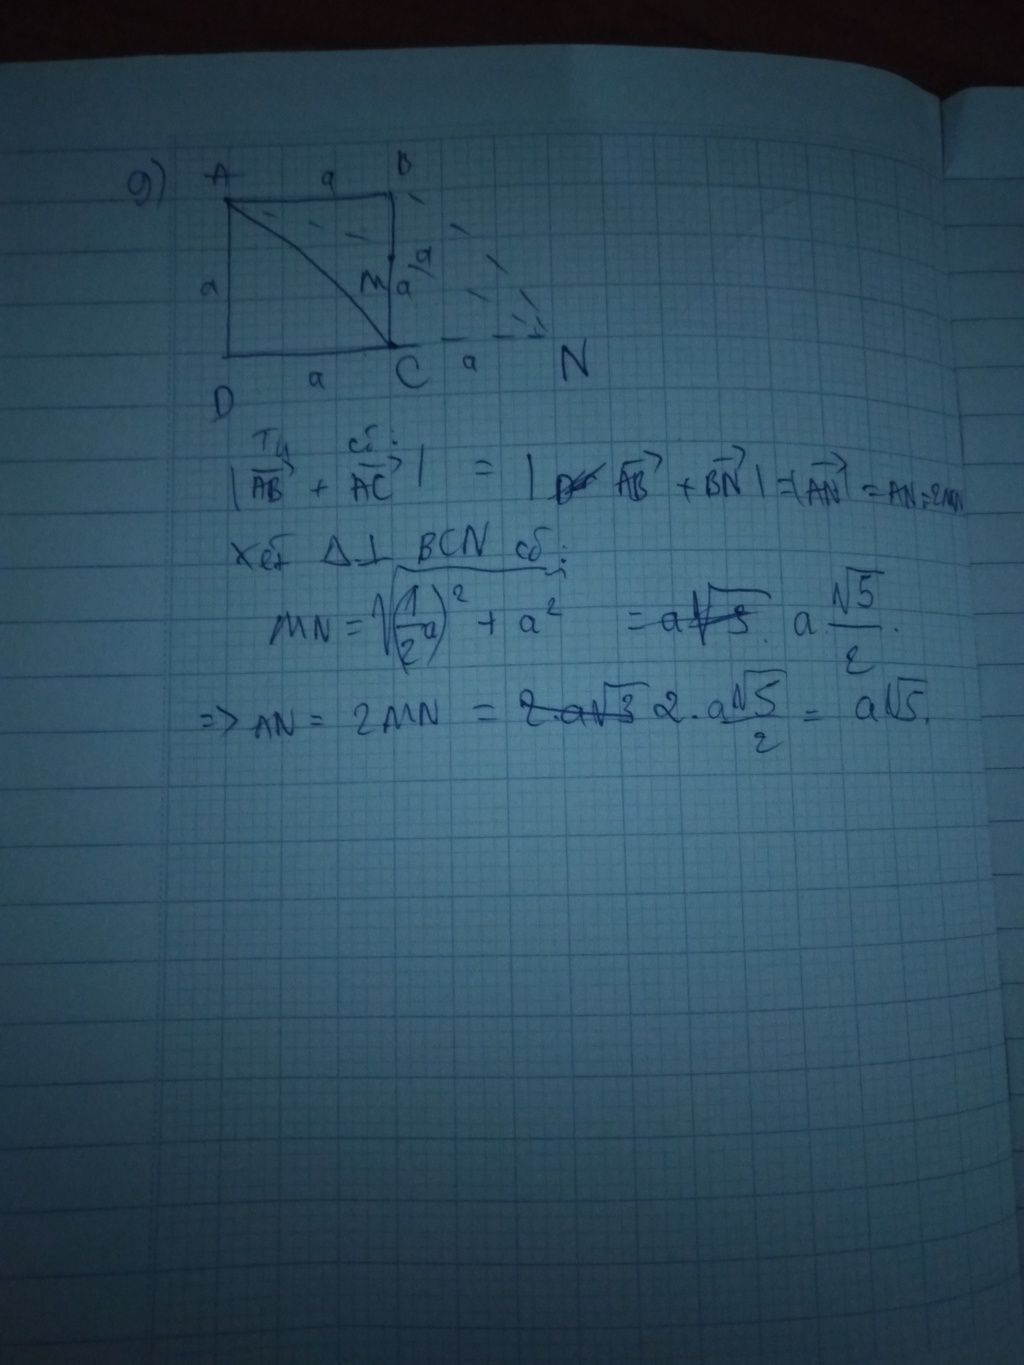 9) A a B
a M a a
D a C a N
Ta có:
|AB→ + AC→| = |AB→ + BN→| = |AN→| = AN = 2MN
Xét Δ⊥ BCN có:
MN = √((1/2 a)² + a²) = a√5/2.
=> AN = 2MN = 2.a√5/2 = a√5.